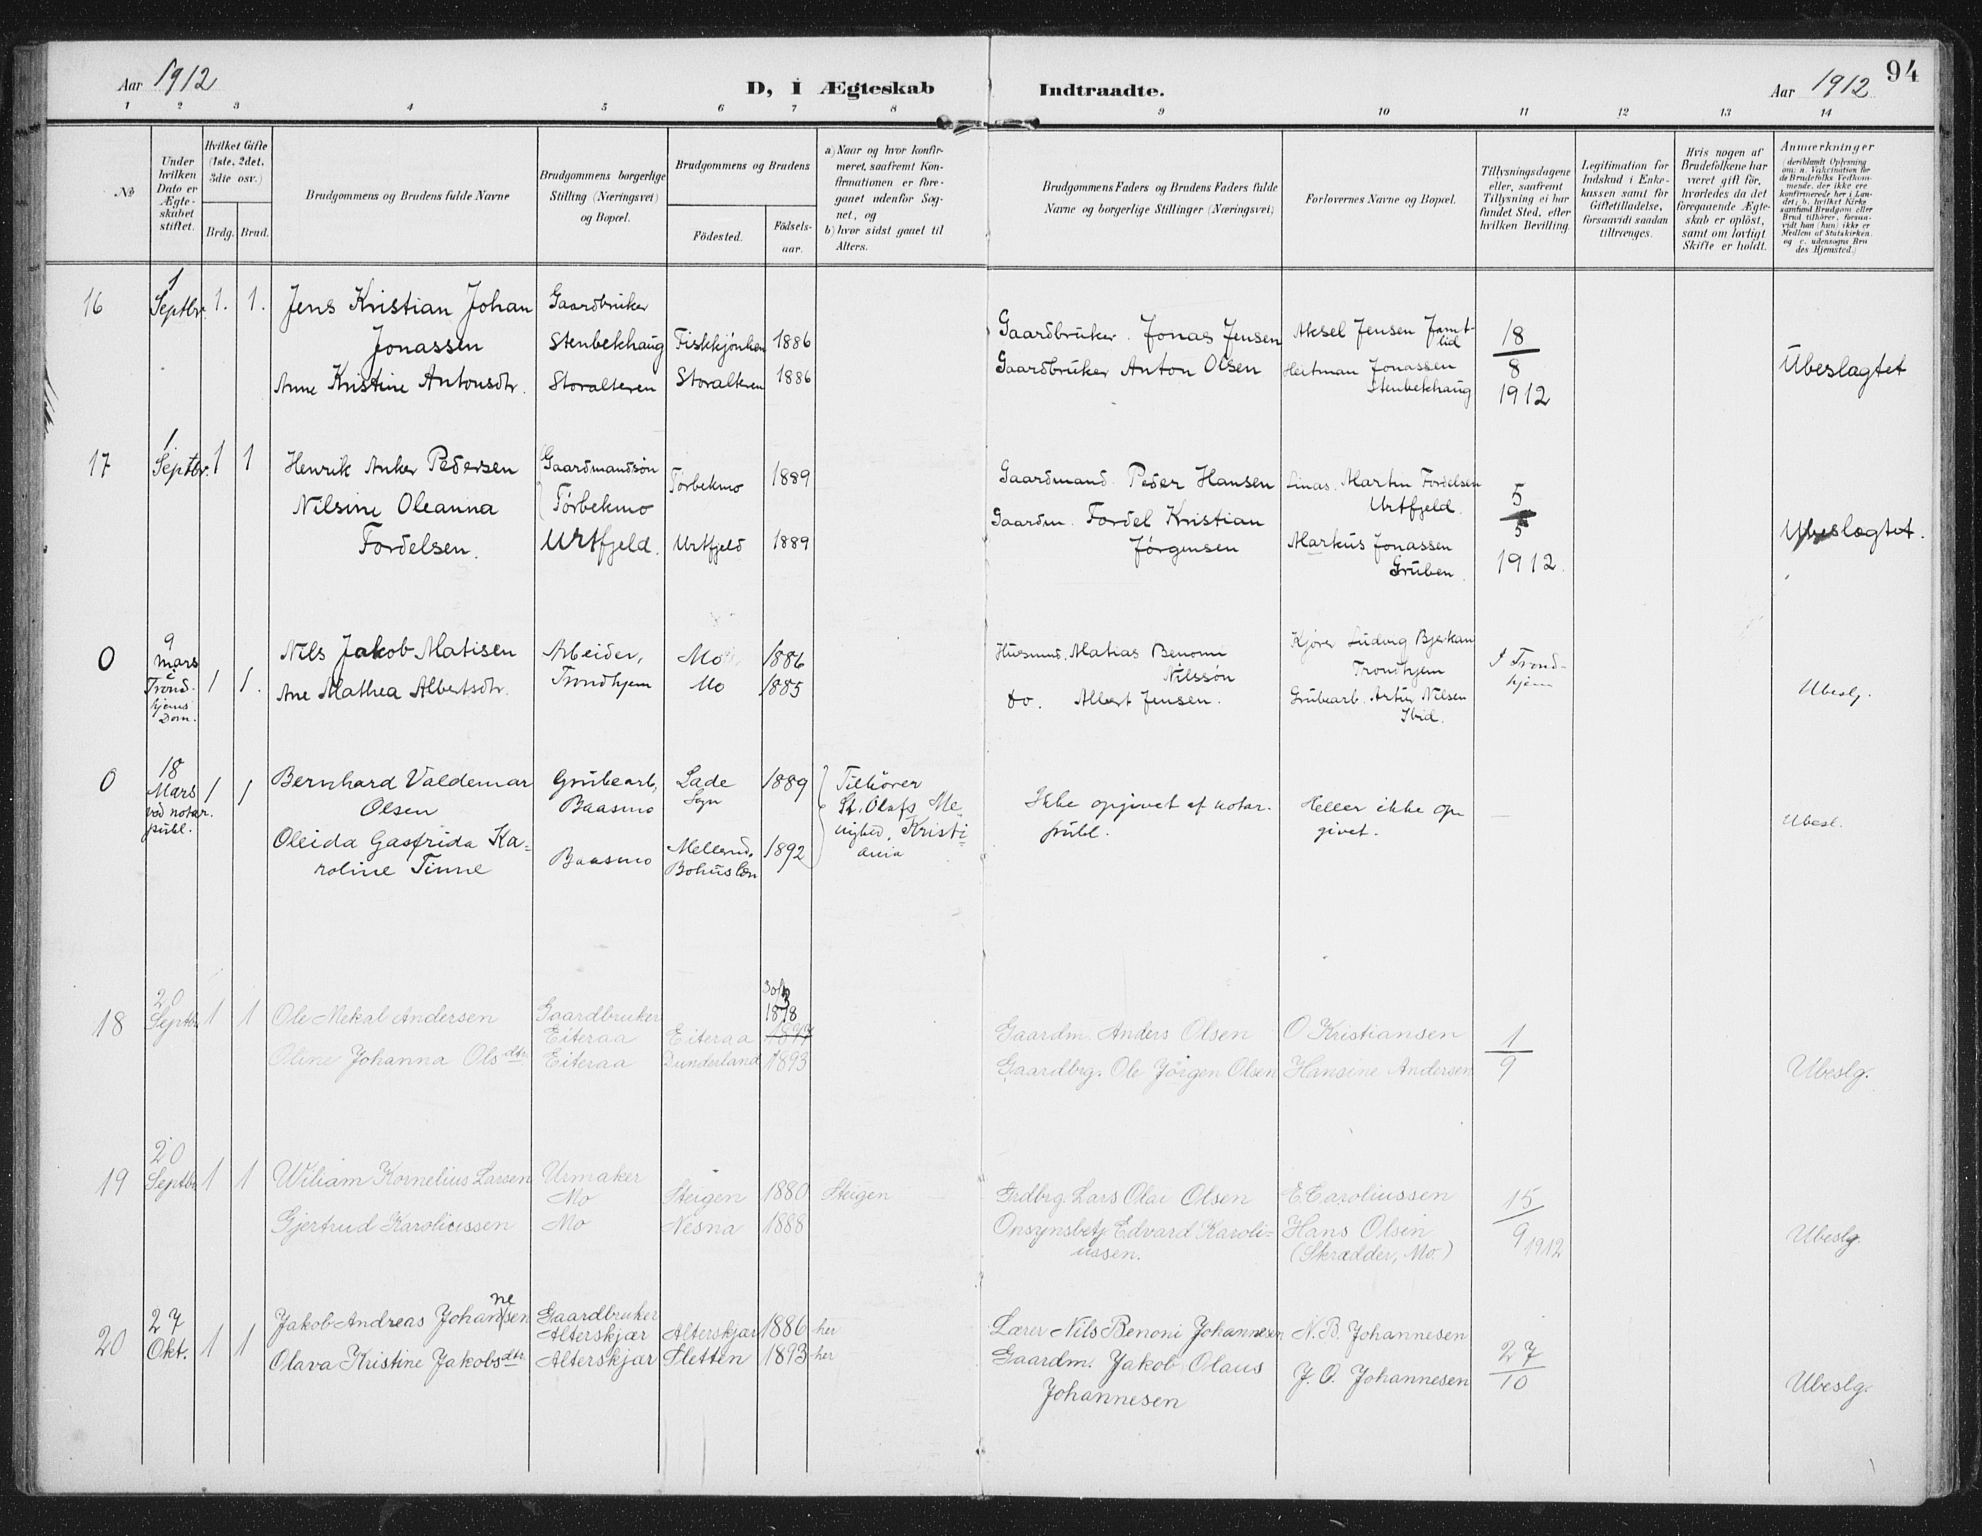 94
Aar 1912
D, i Ægteskab Indtraadte.
Aar 1912
1 2 3 4 5 6 7 8 9 10 11 12 13 14
No
Under hvilken Dato er Ægteskabet stiftet.
Hvilket Gifte (1ste, 2det, 3die osv.)
Brdg. Brud.
Brudgommens og Brudens fulde Navne
Brudgommens borgerlige Stilling (Næringsvei) og Bopæl.
Brudgommens og Brudens
Födested.
Födsels-aar.
a) Naar og hvor konfirmeret, saafremt Konfirmationen er foregaaet udenför Sognet, og
b) hvor sidst gaaet til Alters.
Brudgommens Faders og Brudens Faders fulde Navne og borgerlige Stillinger (Næringsvei)
Forlovernes Navne og Bopæl.
Tillysningsdagene eller, saafremt Tillysning ei har fundet Sted, efter hvilken Bevilling.
Legitimation for Indskud i Enkekassen samt for Giftetilladelse, forsaavidt saadan tiltrænges.
Hvis nogen af Brudefolkene har været gift för, hvorledes da det foregaaende Ægteskab er oplöst, samt om lovligt Skifte er holdt.
Anmerkninger
(deriblandt Oplysning om: a. Vaccination for de Brudefolks Vedkommende, der ikke ere konfirmerede her i Landet; b. hvilket Kirkesamfund Brudgom eller Brud tilhörer, forsaavidt han (hun) ikke er Medlem af Statskirken, og c. udensogns Brudes Hjemsted.)
16
1
Septbr. 1. 1. Jens Kristian Johan
Jonassen
Anne Kristine Antonsdtr.
Gaardbruker
Stenbekhaug Fiskkjönhen 1886
Storalteren Storalteren 1886
Gaardbruker. Jonas Jensen
Gaardbruker Anton Olsen
Aksel Jensen Jamtlid
Heitman Jonassen
Stenbekhaug
18
8
1912
Ubeslagtet
17
1
Septbr. 1 1 Henrik Anker Pedersen
Nilsine Oleanna
Fordelsen.
Gaardmandsön
Törbekmo Törbekmo 1889
Urtfjeld. Urtfjeld 1889
Gaardmand. Peder Hansen
Gaardm. Fordel Kristian
Jörgensen
Linas. Martin Fordelsen
Urtfjeld.
Markus Jonassen
Gruben.
5
5
1912.
Ubeslægtet.
0
9
mars
i
Trondhjems
Dom.
1 1.
Nils Jakob Matisen
Ane Mathea Albertsdtr.
Arbeider,
Trondhjem
Mo 1886
Mo 1885
Husmnd. Matias Benoni
Nilssön
do. Albert Jensen.
Kjörer Ludvig Bjerkan
Trondhjem
Grubearb. Artur Nilsen
Ibid.
I Trondhjem
Ubeslg.
0
18
Mars
ved notar.
publ.
1 1
Bernhard Valdemar
Olsen
Oleida Gasfrida Karoline Tinne
Grubearb,
Baasmo
Baasmo
Lade
Sogn
1889
Melland,
Bohuslæn
1892
Tilhörer
St. Olafs Menighed, Kristiania
Ikke opgivet af notar.
publ.
Heller ikke opgivet.
—
Ubesl.
18
20
Septbr 1 1 Ole Mekal Andersen
Oline Johanna Olsdtr.
Gaardbruker
Eiteraa Eiteraa
1878
Eiteraa Dunderland 1893
Gaardm. Anders Olsen
Gaardbrg. Ole Jörgen Olsen
O Kristiansen
Hansine Andersen
1
9
Ubeslg.
19
20
Septbr 1 1 Wiliam Kornelius Larsen
Gjertrud Karoliussen
Urmaker
Mo Steigen 1880 Steigen
Mo Nesna 1888
Grdbrg. Lars Olai Olsen
Opsynsbetj Edvard Karoliussen.
E. Caroliussen
Hans Olsen
(Skrædder, Mo.)
15
9 1912
Ubeslg.
20
27
Okt. 1 1 Jakob Andreas Johannesen
Olava Kristine Jakobsdtr
Gaardbruker
Alterskjær Alterskjær 1886 her
Alterskjær Sletten 1893 her
Lærer Nils Benoni Johannesen
Gaardm. Jakob Olaus
Johannesen
N. B. Johannesen
J. O. Johannesen
27
10
Ubeslg.